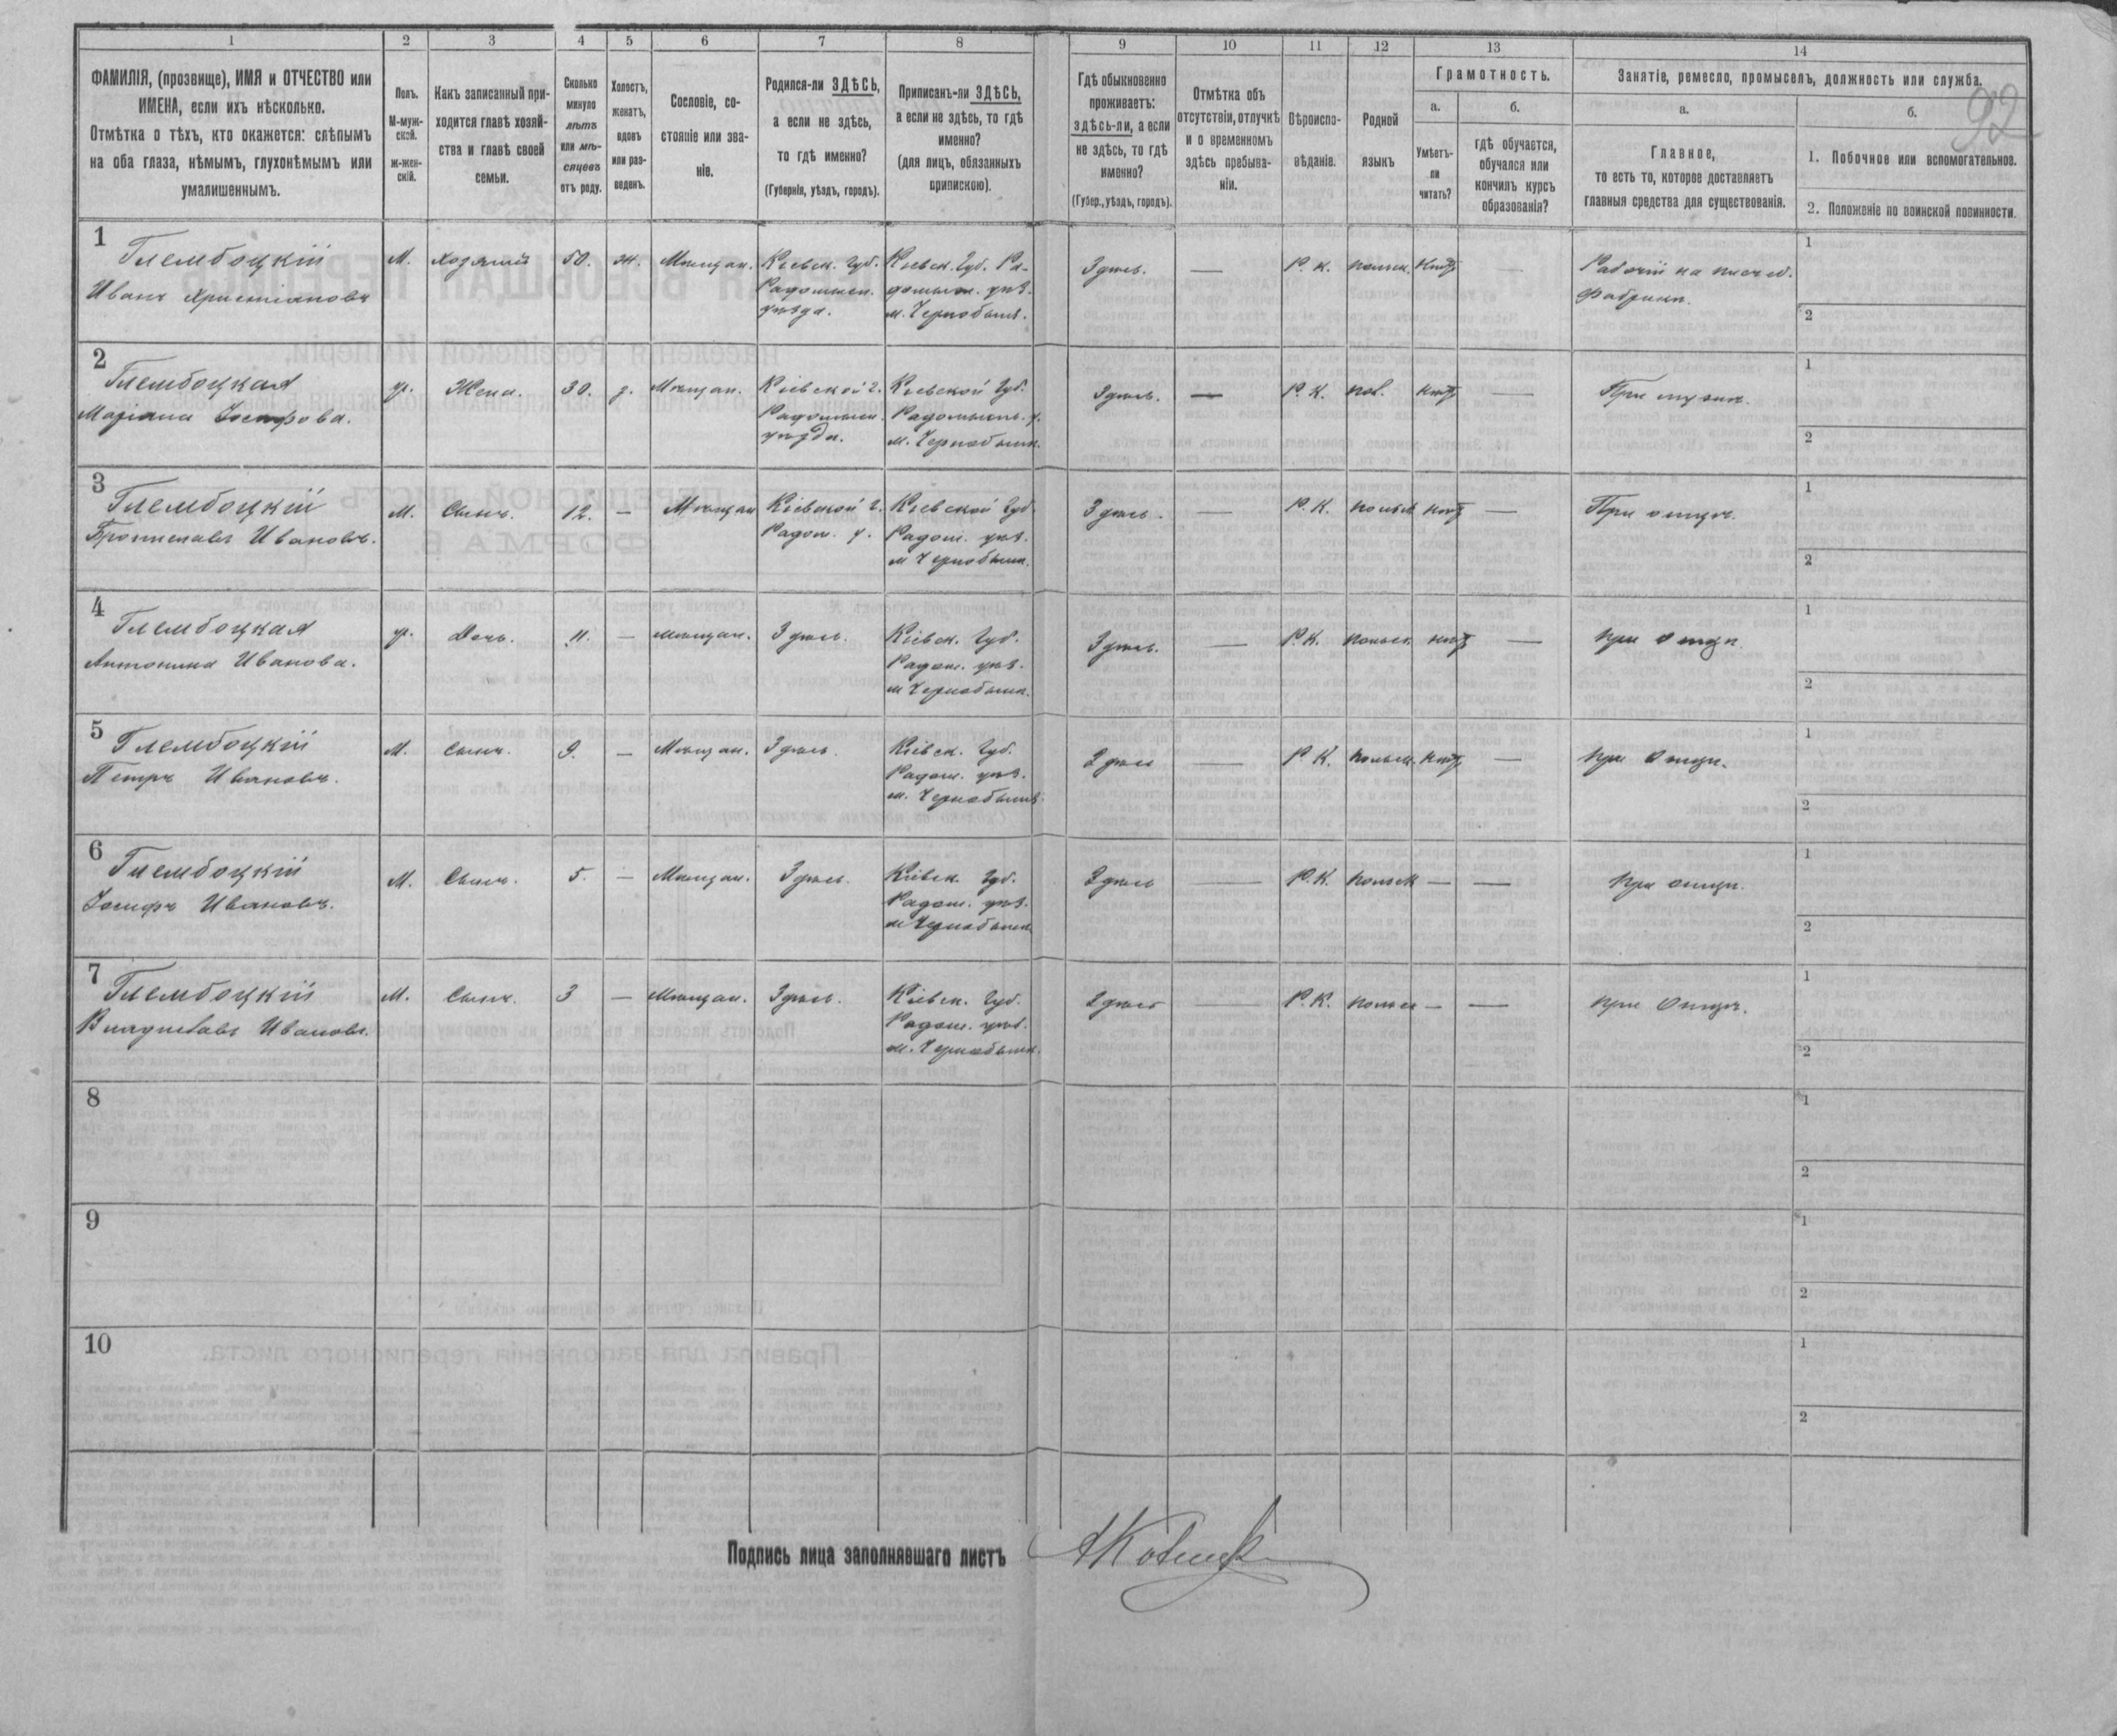 1 2 3 4 5 6 7 8 9 10 11 12 13 14
92
ФАМИЛІЯ, (прозвище), ИМЯ и ОТЧЕСТВО или
ИМЕНА, если ихъ нѣсколько.
Отмѣтка о тѣхъ, кто окажется: слѣпымъ
на оба глаза, нѣмымъ, глухонѣмымъ или
умалишеннымъ.
Полъ.
М-муж-
ской.
ж-жен-
скій.
Какъ записанный при-
ходится главѣ хозяй-
ства и главѣ своей
семьи.
Сколько
минуло
лѣтъ
или мѣ-
сяцевъ
отъ роду.
Холостъ,
женатъ,
вдовъ
или раз-
веденъ.
Сословіе, со-
стояніе или зва-
ніе.
Родился-ли ЗДѢСЬ,
а если не здѣсь,
то гдѣ именно?
(Губернія, уѣздъ, городъ).
Приписанъ-ли ЗДѢСЬ,
а если не здѣсь, то гдѣ
именно?
(для лицъ, обязанныхъ
припискою).
Гдѣ обыкновенно
проживаетъ:
здѣсь-ли, а если
не здѣсь, то гдѣ
именно?
(Губер., уѣздъ, городъ).
Отмѣтка объ
отсутствіи, отлучкѣ
и о временномъ
здѣсь пребыва-
ніи.
Вѣроиспо-
вѣданіе.
Родной
языкъ
Грамотность.
а.
Умѣетъ-
ли
читать?
б.
гдѣ обучается,
обучался или
кончилъ курсъ
образованія?
Занятіе, ремесло, промыселъ, должность или служба.
а.
Главное,
то есть то, которое доставляетъ
главныя средства для существованія.
б.
1. Побочное или вспомогательное.
2. Положеніе по воинской повинности.
1
Глембоцкій
Иванъ Христіановъ
М. Хозяинъ 50. ж. Мѣщан.
Кіевск. губ.
Радомысл.
уѣзда.
Кіевск. губ. Ра-
домысл. уѣз.
м. Чернобыль.
Здѣсь. — Р. К. польск. нѣтъ —
Рабочій на писчеб.
фабрикѣ.
1
2
2
Глембоцкая
Маріана Іосифова.
Жена. 30. з. Мѣщан.
Кіевской г.
Радомысл.
уѣзда.
Кіевской губ.
Радомысль. у.
м. Чернобыль.
Здѣсь. — Р. К. пол. нѣтъ —
При мужѣ.
1
2
3
Глембоцкій
Брониславъ Ивановъ.
М. Сынъ. 12. — Мѣщан
Кіевской г.
Радом. у.
Кіевской губ.
Радом. уѣз.
м Чернобыль.
Здѣсь. — Р. К. польск нѣтъ —
При отцѣ.
1
2
4
Глембоцкая
Антонина Иванова.
Дочь. 11. — мѣщан. Здѣсь.
Кіевск. губ.
Радом. уѣз.
м Чернобыль.
Здѣсь. — Р. К. польск нѣтъ —
при отцѣ.
1
2
5
Глембоцкій
Петръ Ивановъ.
М. Сынъ. 9. — Мѣщан. Здѣсь.
Кіевск. губ.
Радом. уѣз.
м. Чернобыль.
Здѣсь — Р. К. польск. нѣтъ —
при отцѣ.
1
2
6
Глембоцкій
Іосифъ Ивановъ.
М. Сынъ. 5. — Мѣщан. Здѣсь.
Кіевск. губ.
Радом. уѣз.
м Чернобыль
Здѣсь — Р. К. польск — —
при отцѣ.
1
2
7
Глембоцкій
Владиславъ Ивановъ.
М. Сынъ. 3 — Мѣщан. Здѣсь.
Кіевск. губ.
Радом. уѣз.
м. Чернобыль.
Здѣсь — Р. К. польск — —
при отцѣ.
1
2
8
1
2
9
1
2
10
1
2
Подпись лица заполнявшаго листъ